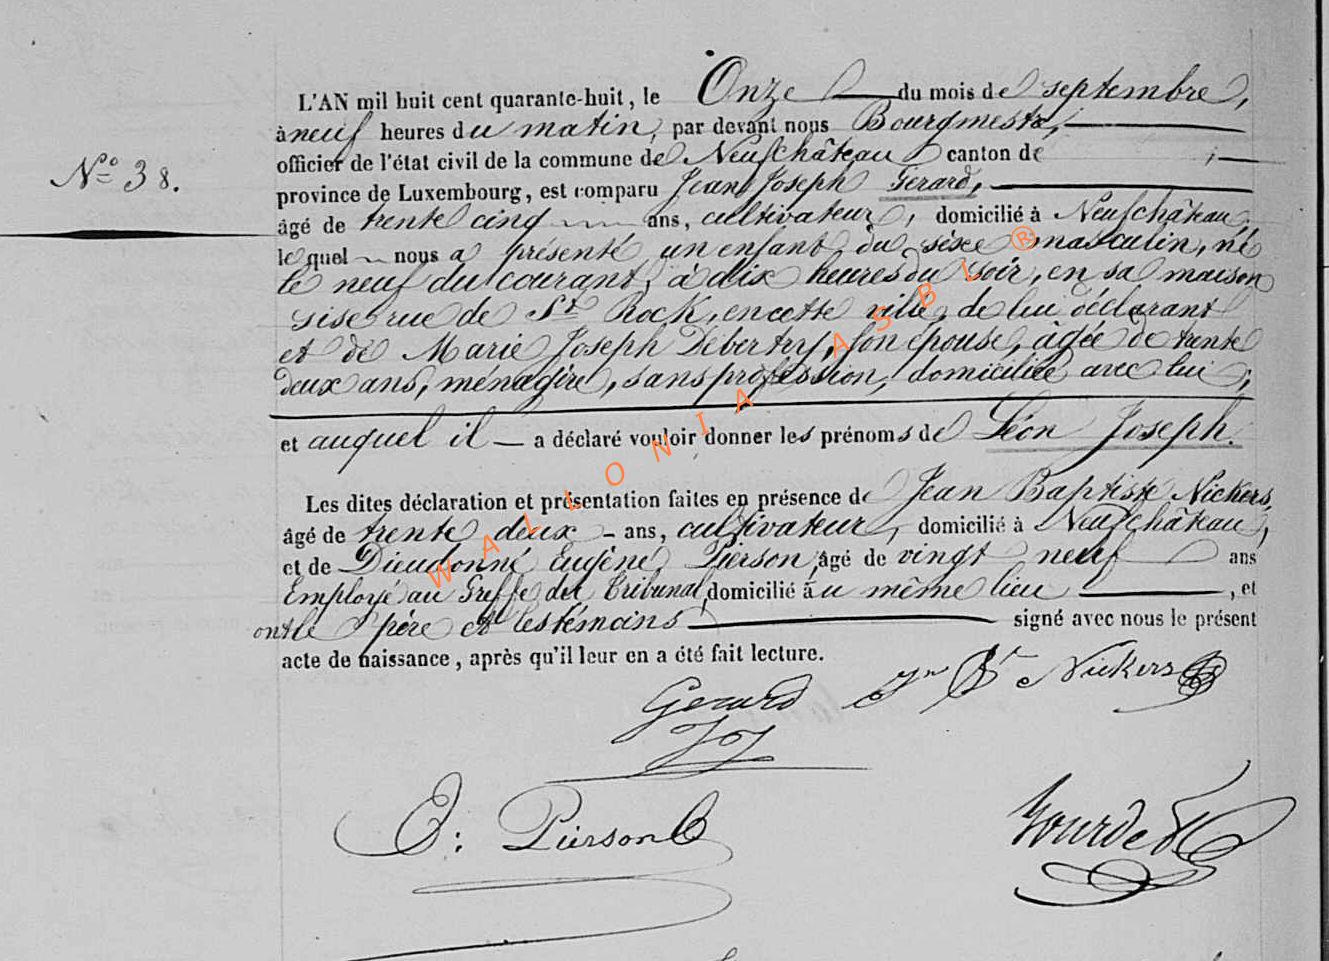 L'AN mil huit cent quarante-huit, le Onze du mois de septembre,
à neuf heures du matin, par devant nous Bourgmestre,
officier de l'état civil de la commune de Neufchâteau canton de ,
N.º 38.
province de Luxembourg, est comparu Jean Joseph Gerard,
âgé de trente cinq ans, cultivateur, domicilié à Neufchâteau,
lequel nous a présenté un enfant du sèxe masculin, né
le neuf du courant, à dix heures du soir, en sa maison
sise rue de St Rock, en cette ville, de lui déclarant
et de Marie Joseph Debertry, son épouse, âgée de trente
deux ans, ménagère, sans profession, domiciliée avec lui,
et auquel il a déclaré vouloir donner les prénoms de Léon Joseph.
Les dites déclaration et présentation faites en présence de Jean Baptiste Nickers,
âgé de trente deux ans, cultivateur, domicilié à Neufchâteau,
et de Dieudonné Eugène Pierson, âgé de vingt neuf ans
Employé au Greffe du Tribunal, domicilié au même lieu , et
ont le père et les témoins signé avec nous le présent
acte de naissance, après qu'il leur en a été fait lecture.
Gerard Jn Bte Nickers
JJ
E: Pierson
WALLONIA ASBL ®